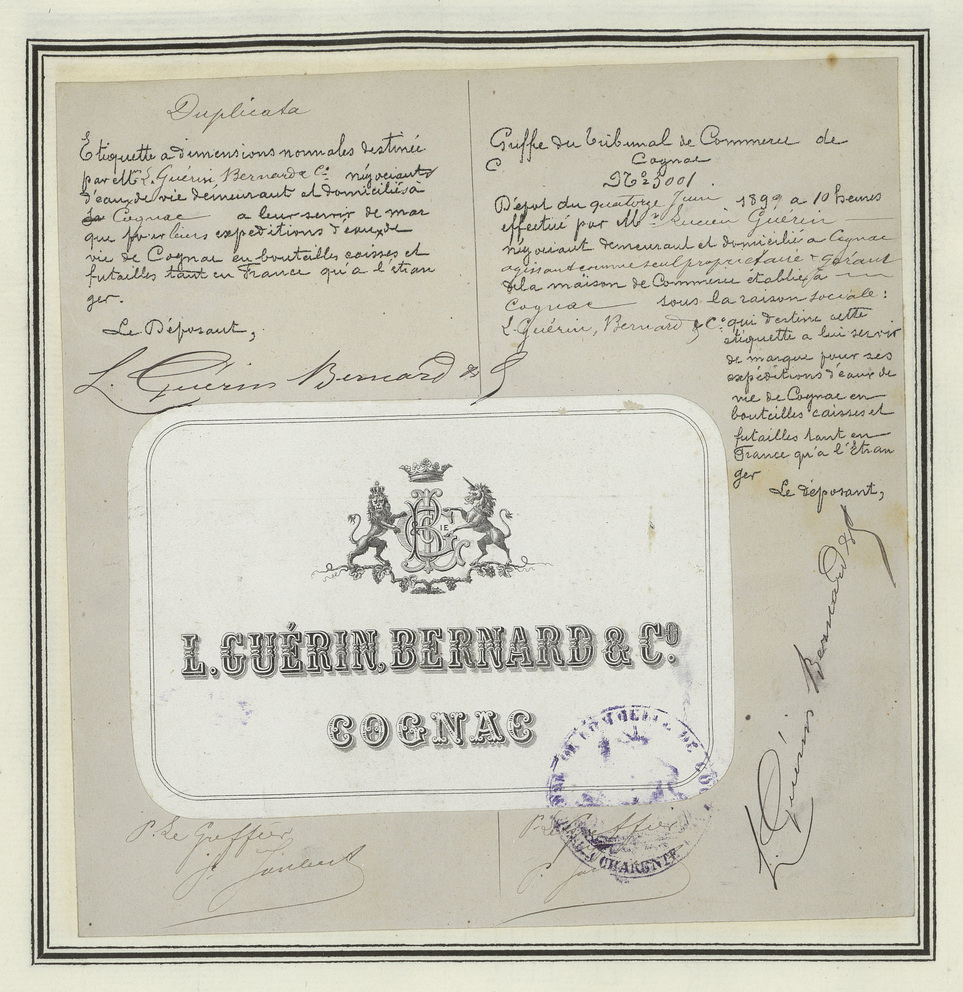 Duplicata
Etiquette a dimensions normales destinée
par Mrs L. Guérin, Bernard & Co. négociants
d'eau de vie demeurant et domiciliés à
Cognac a leur servir de mar
que pour leurs expeditions d'eaux de
vie de Cognac en bouteilles caisses et
futailles tant en France qu'a l'étran
ger.
Le Déposant,
L. Guérin Bernard & Co
Greffe du Tribunal de Commerce de
Cognac
No 5001
Dépot du quatorze Juin 1899 a 10 heures
effectué par Mr Lucien Guérin
négociant demeurant et domicilié a Cognac
agissant comme seul propriétaire & gérant
de la maison de Commerce établie à
Cognac sous la raison sociale :
L. Guérin, Bernard & Co. qui destine cette
étiquette a lui servir
de marque pour ses
expéditions d'eaux de
vie de Cognac en
bouteilles caisses et
futailles tant en
France qu'a l'Etran
ger
Le déposant,
L. Guérin Bernard & Co
IE
L. GUÉRIN, BERNARD & Co
COGNAC
P. Le Greffier
P. Le Greffier
CHARENTE